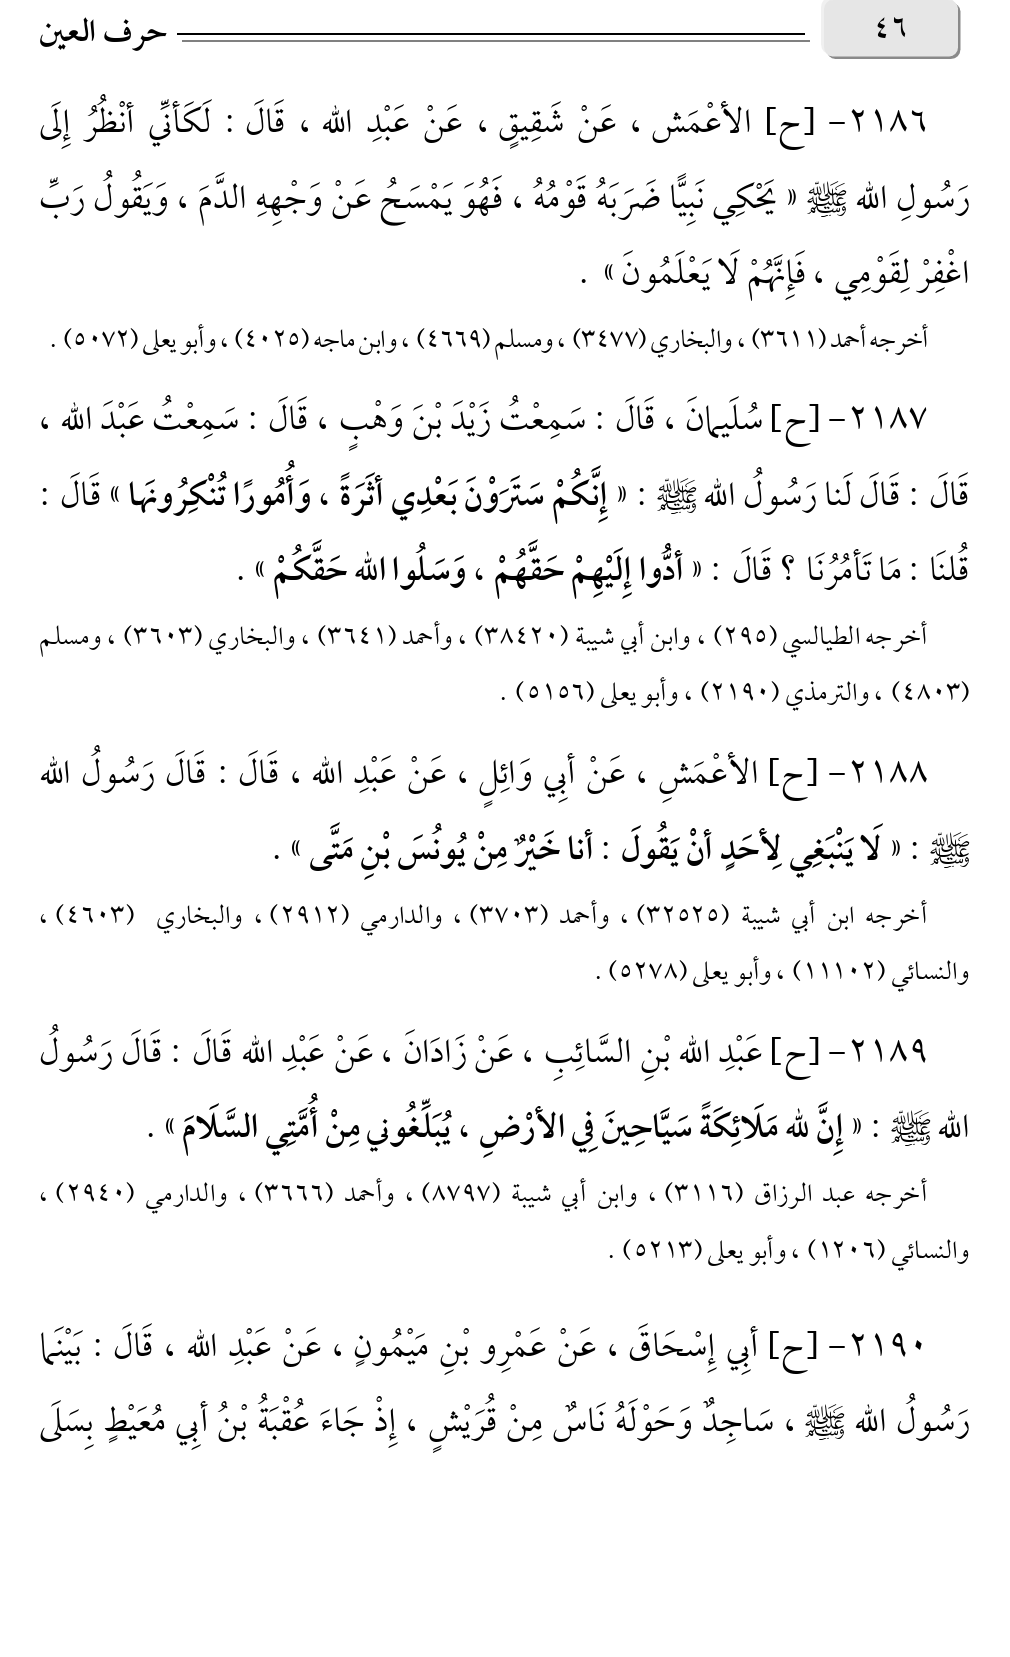 ٤٦
حرف العين
٢١٨٦- [ح] الأعْمَش ، عَنْ شَقِيقٍ ، عَنْ عَبْدِ الله ، قَالَ : لَكَأنِّي أنْظُرُ إِلَى
رَسُولِ الله ﷺ « يَحْكِي نَبِيًّا ضَرَبَهُ قَوْمُهُ ، فَهُوَ يَمْسَحُ عَنْ وَجْهِهِ الدَّمَ ، وَيَقُولُ رَبِّ
اغْفِرْ لِقَوْمِي ، فَإِنَّهُمْ لَا يَعْلَمُونَ » .
أخرجه أحمد (٣٦١١) ، والبخاري (٣٤٧٧) ، ومسلم (٤٦٦٩) ، وابن ماجه (٤٠٢٥) ، وأبو يعلى (٥٠٧٢) .
٢١٨٧- [ح] سُلَيمانَ ، قَالَ : سَمِعْتُ زَيْدَ بْنَ وَهْبٍ ، قَالَ : سَمِعْتُ عَبْدَ الله ،
قَالَ : قَالَ لَنا رَسُولُ الله ﷺ : « إِنَّكُمْ سَتَرَوْنَ بَعْدِي أثَرَةً ، وَأُمُورًا تُنْكِرُونَها » قَالَ :
قُلنَا : مَا تَأمُرُنَا ؟ قَالَ : « أدُّوا إِلَيْهِمْ حَقَّهُمْ ، وَسَلُوا الله حَقَّكُمْ » .
أخرجه الطيالسي (٢٩٥) ، وابن أبي شيبة (٣٨٤٢٠) ، وأحمد (٣٦٤١) ، والبخاري (٣٦٠٣) ، ومسلم
(٤٨٠٣) ، والترمذي (٢١٩٠) ، وأبو يعلى (٥١٥٦) .
٢١٨٨- [ح] الأعْمَشِ ، عَنْ أبِي وَائِلٍ ، عَنْ عَبْدِ الله ، قَالَ : قَالَ رَسُولُ الله
ﷺ : « لَا يَنْبَغِي لِأحَدٍ أنْ يَقُولَ : أنا خَيْرٌ مِنْ يُونُسَ بْنِ مَتَّى » .
أخرجه ابن أبي شيبة (٣٢٥٢٥) ، وأحمد (٣٧٠٣) ، والدارمي (٢٩١٢) ، والبخاري (٤٦٠٣) ،
والنسائي (١١١٠٢) ، وأبو يعلى (٥٢٧٨) .
٢١٨٩- [ح] عَبْدِ الله بْنِ السَّائِبِ ، عَنْ زَادَانَ ، عَنْ عَبْدِ الله قَالَ : قَالَ رَسُولُ
الله ﷺ : « إِنَّ لله مَلَائِكَةً سَيَّاحِينَ فِي الأرْضِ ، يُبَلِّغُوني مِنْ أُمَّتِي السَّلَامَ » .
أخرجه عبد الرزاق (٣١١٦) ، وابن أبي شيبة (٨٧٩٧) ، وأحمد (٣٦٦٦) ، والدارمي (٢٩٤٠) ،
والنسائي (١٢٠٦) ، وأبو يعلى (٥٢١٣) .
٢١٩٠- [ح] أبِي إِسْحَاقَ ، عَنْ عَمْرِو بْنِ مَيْمُونٍ ، عَنْ عَبْدِ الله ، قَالَ : بَيْنَما
رَسُولُ الله ﷺ ، سَاجِدٌ وَحَوْلَهُ نَاسٌ مِنْ قُرَيْشٍ ، إِذْ جَاءَ عُقْبَةُ بْنُ أبِي مُعَيْطٍ بِسَلَى